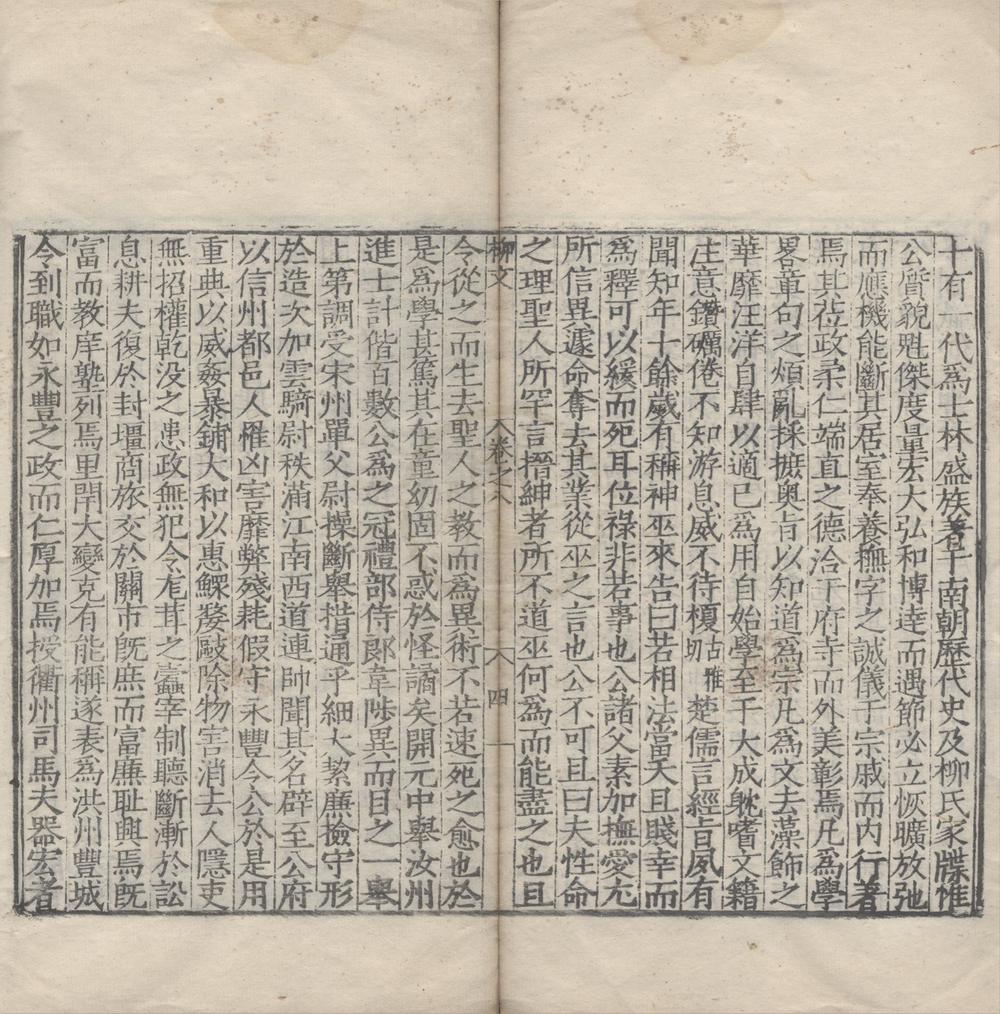 十有一代爲士林盛族著于南朝歷代史及柳氏家牒惟
公質貌魁傑度量宏大弘和博達而遇節必立恢曠放弛
而應機能斷其居室奉養撫字之誠儀于宗戚而内行著
焉其莅政柔仁端直之德洽于府寺而外美彰焉凡爲學
畧章句之煩亂採摭奥旨以知道爲宗凡爲文去藻飾之
華靡汪洋自肆以適己爲用自始學至于大成躭嗜文籍
注意鑽礪倦不知游息威不待榎古雅切楚儒言經旨夙有
聞知年十餘歲有稱神巫來告曰若相法當夭且賤幸而
爲釋可以緩而死耳位祿非若事也公諸父素加撫愛尤
所信異遽命奪去其業從巫之言也公不可且曰夫性命
之理聖人所罕言搢紳者所不道巫何爲而能盡之也且
柳文 卷之八 八 四
令從之而生去聖人之教而爲異術不若速死之愈也於
是爲學甚篤其在童幼固不惑於怪譎矣開元中舉汝州
進士計偕百數公爲之冠禮部侍郎韋陟異而目之一舉
上第調受宋州單父尉操斷舉措通乎細大絜廉撿守形
於造次加雲騎尉秩滿江南西道連帥聞其名辟至公府
以信州都邑人罹凶害靡弊殘耗假守永豐令公於是用
重典以威姦暴鋪大和以惠鰥嫠敺除物害消去人隱吏
無招權乾没之患政無犯令尨茸之蠹宰制聽斷漸於訟
息耕夫復於封壃商旅交於關市既庶而富廉耻興焉既
富而教庠塾列焉里閈大變克有能稱遂表爲洪州豐城
令到職如永豐之政而仁厚加焉授衢州司馬夫器宏者